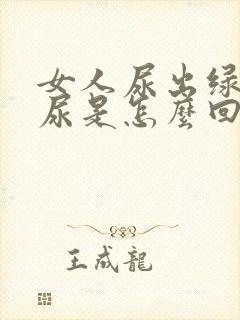 女人尿出绿
尿是怎麼回
王成龍